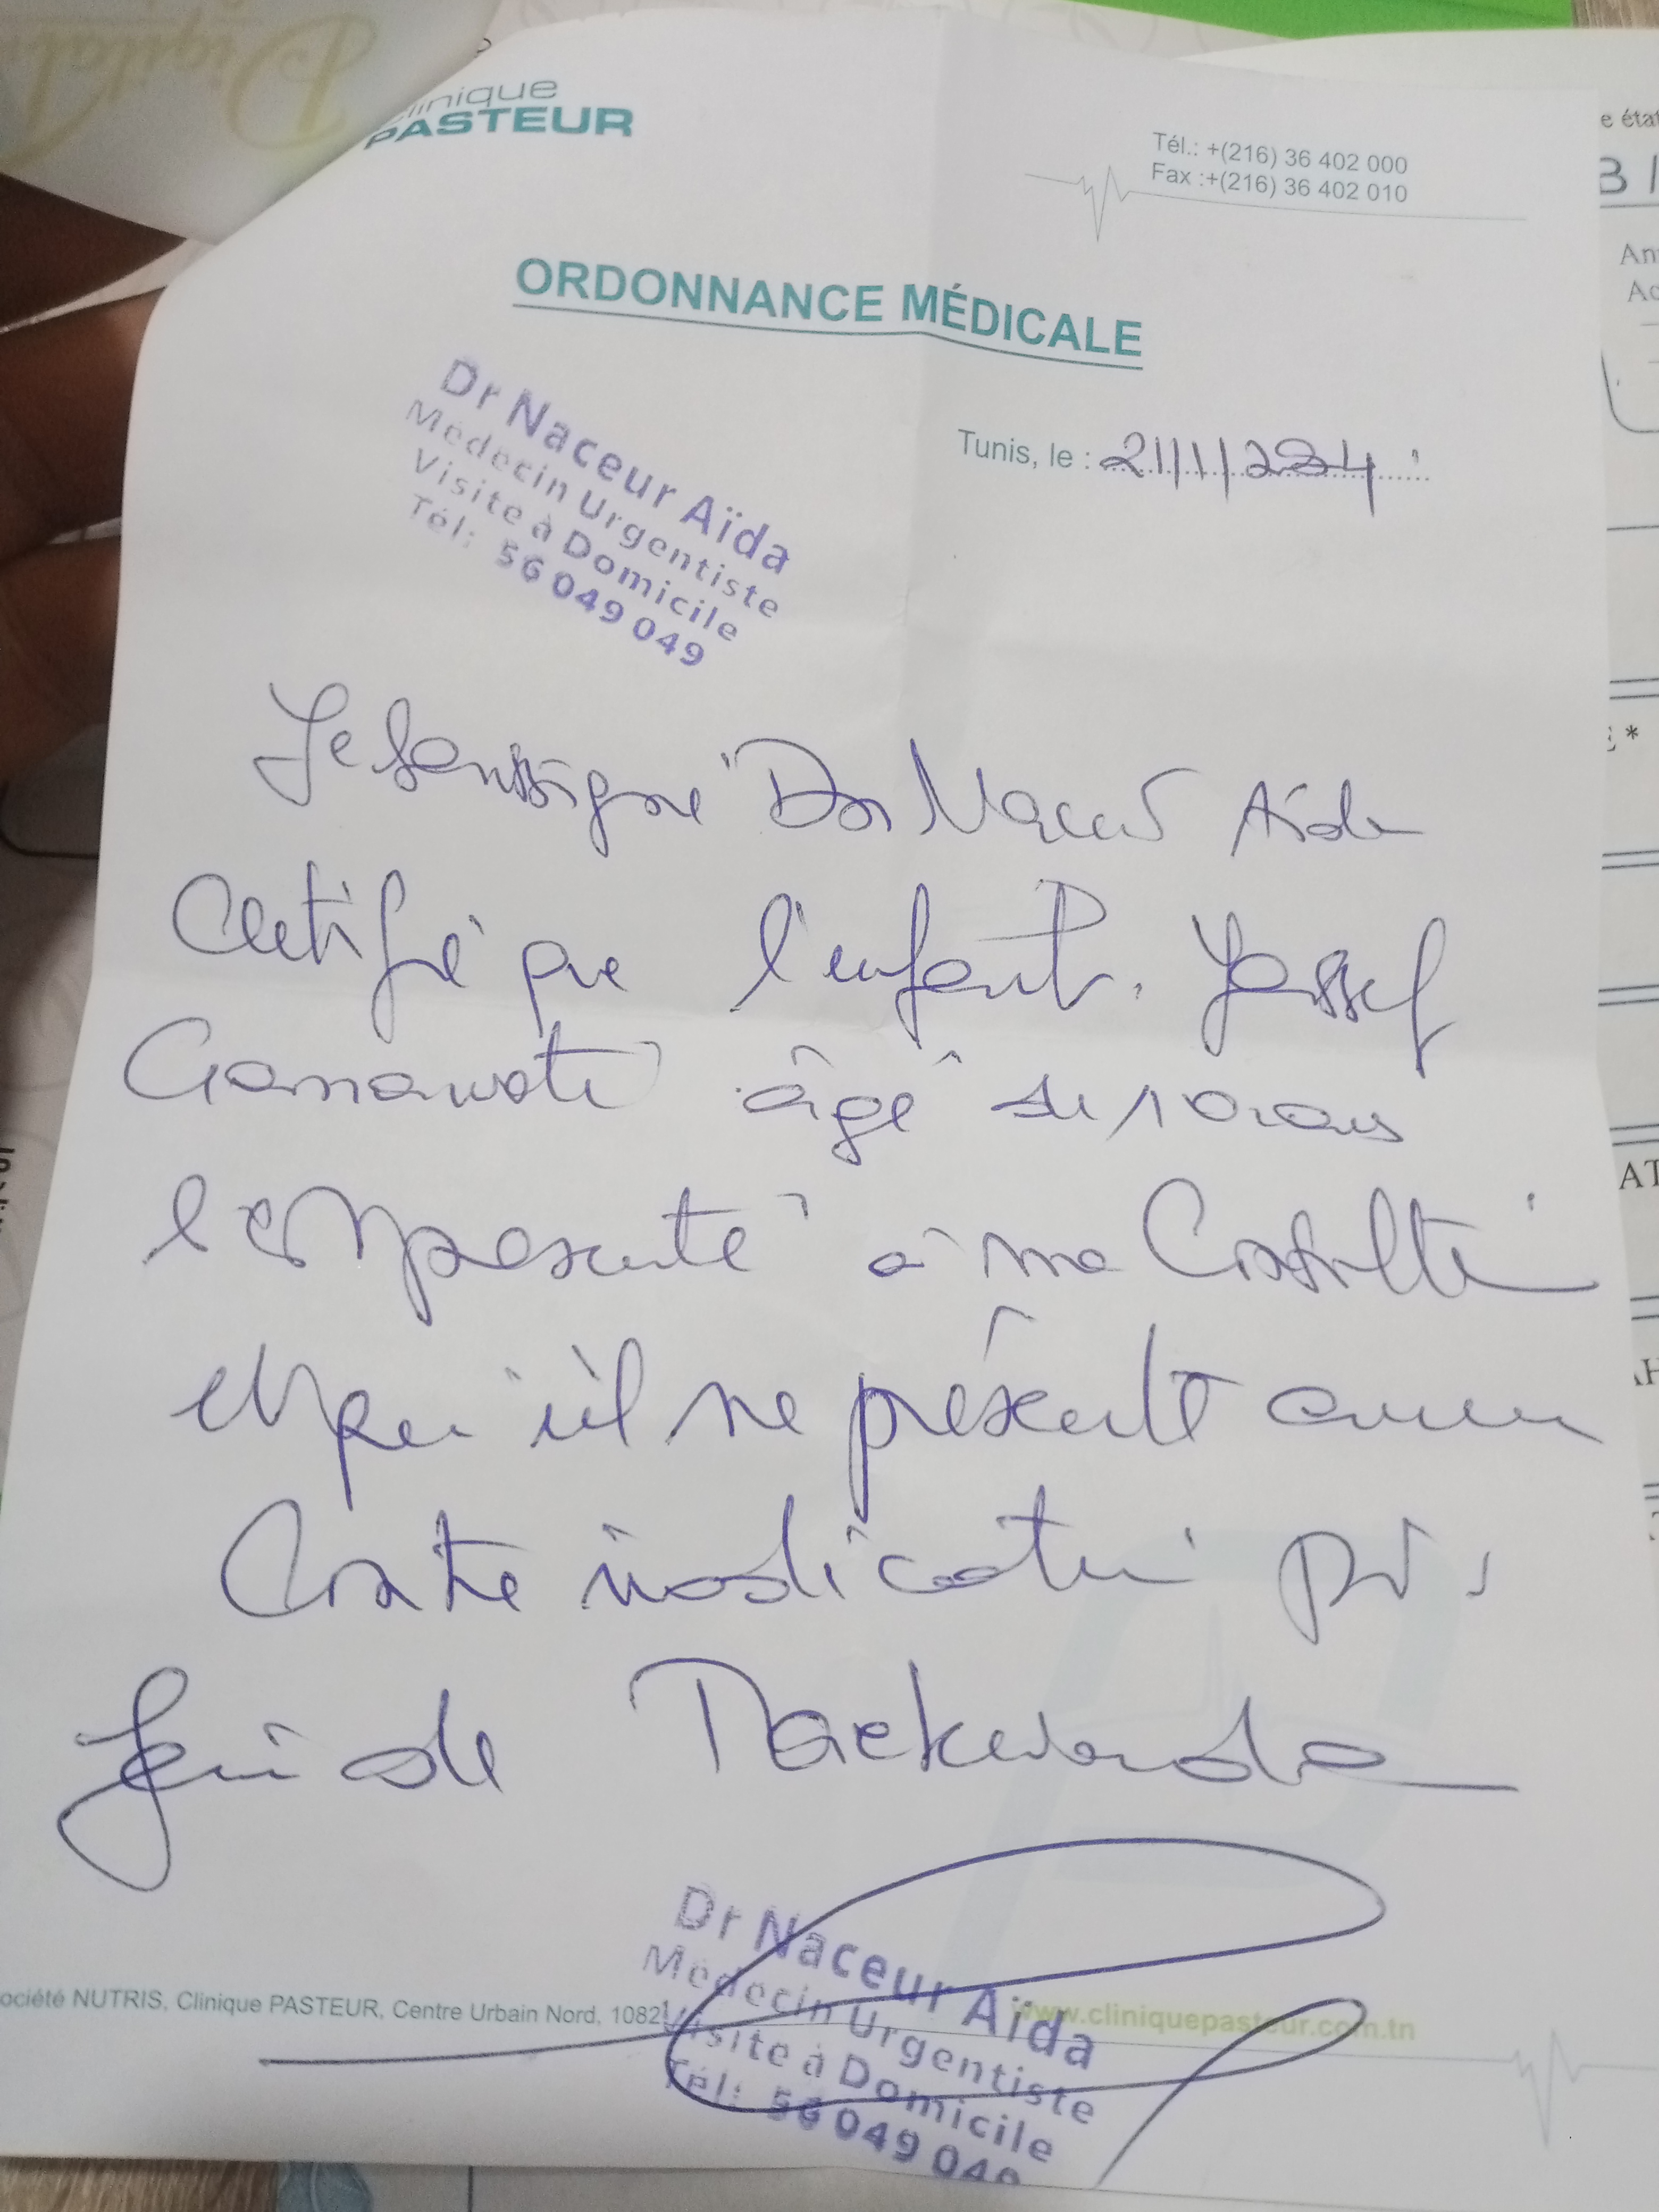 Clinique
PASTEUR
Tél.: +(216) 36 402 000
Fax :+(216) 36 402 010
ORDONNANCE MÉDICALE
Dr Naceur Aïda
Médecin Urgentiste
Visite à Domicile
Tél: 56 049 049
Tunis, le : 21/1/2024
Je soussigné Dr Naceur Aida
Certifie que l'enfant. Yossef
âgé de 10 ans
présenté à ma Consultation
et qu'il ne présente aucun
Contre indication pr
de Taekwondo
Dr Naceur Aïda
Médecin Urgentiste
Visite à Domicile
Tél: 56 049 049
ociété NUTRIS, Clinique PASTEUR, Centre Urbain Nord, 1082
www.cliniquepasteur.com.tn